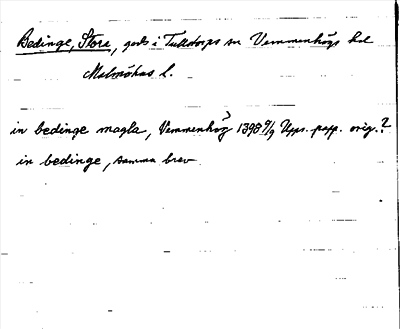 Bedinge, Stora, gods i Tulltorps sn Vemmenhögs hd
Malmöhus l.
in bedinge magla, Vemmenhög 1398 9/9 Upps. papp. orig.?
in bedinge, samma brev